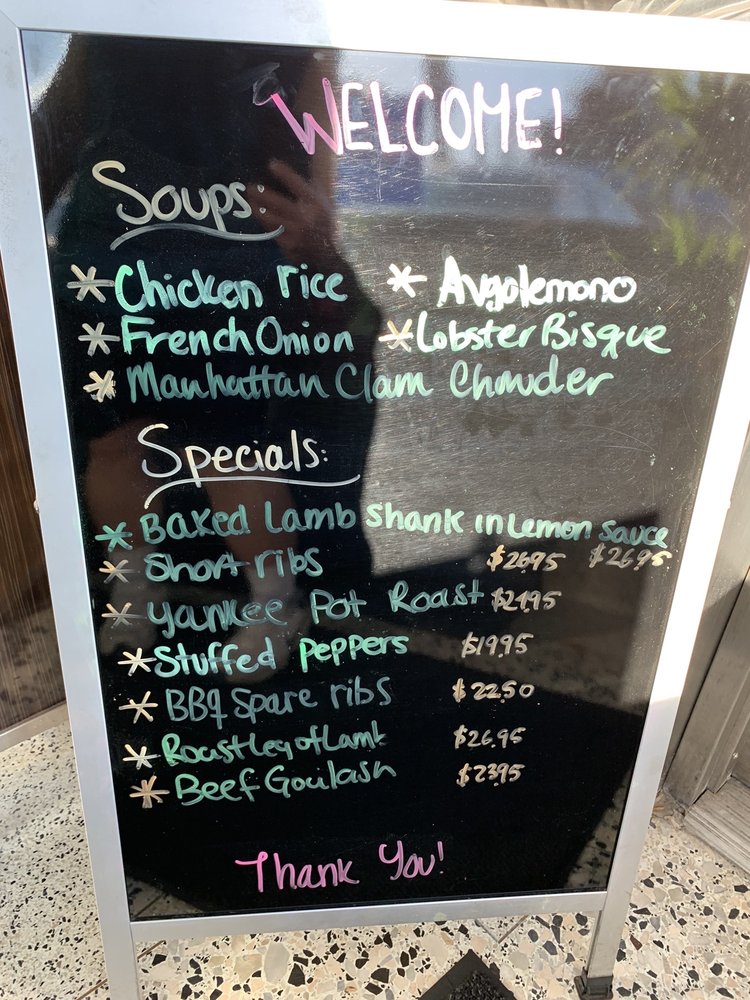 WELCOME!
Soups:
* Chicken rice * Avgolemono
* French Onion * Lobster Bisque
* Manhattan Clam Chowder
Specials:
* Baked Lamb Shank in Lemon Sauce
$26.95
* Short ribs $26.95
* Yankee Pot Roast $21.95
* Stuffed Peppers $19.95
* BBq Spare ribs $22.50
* Roast Leg of Lamb $26.95
* Beef Goulash $23.95
Thank You!